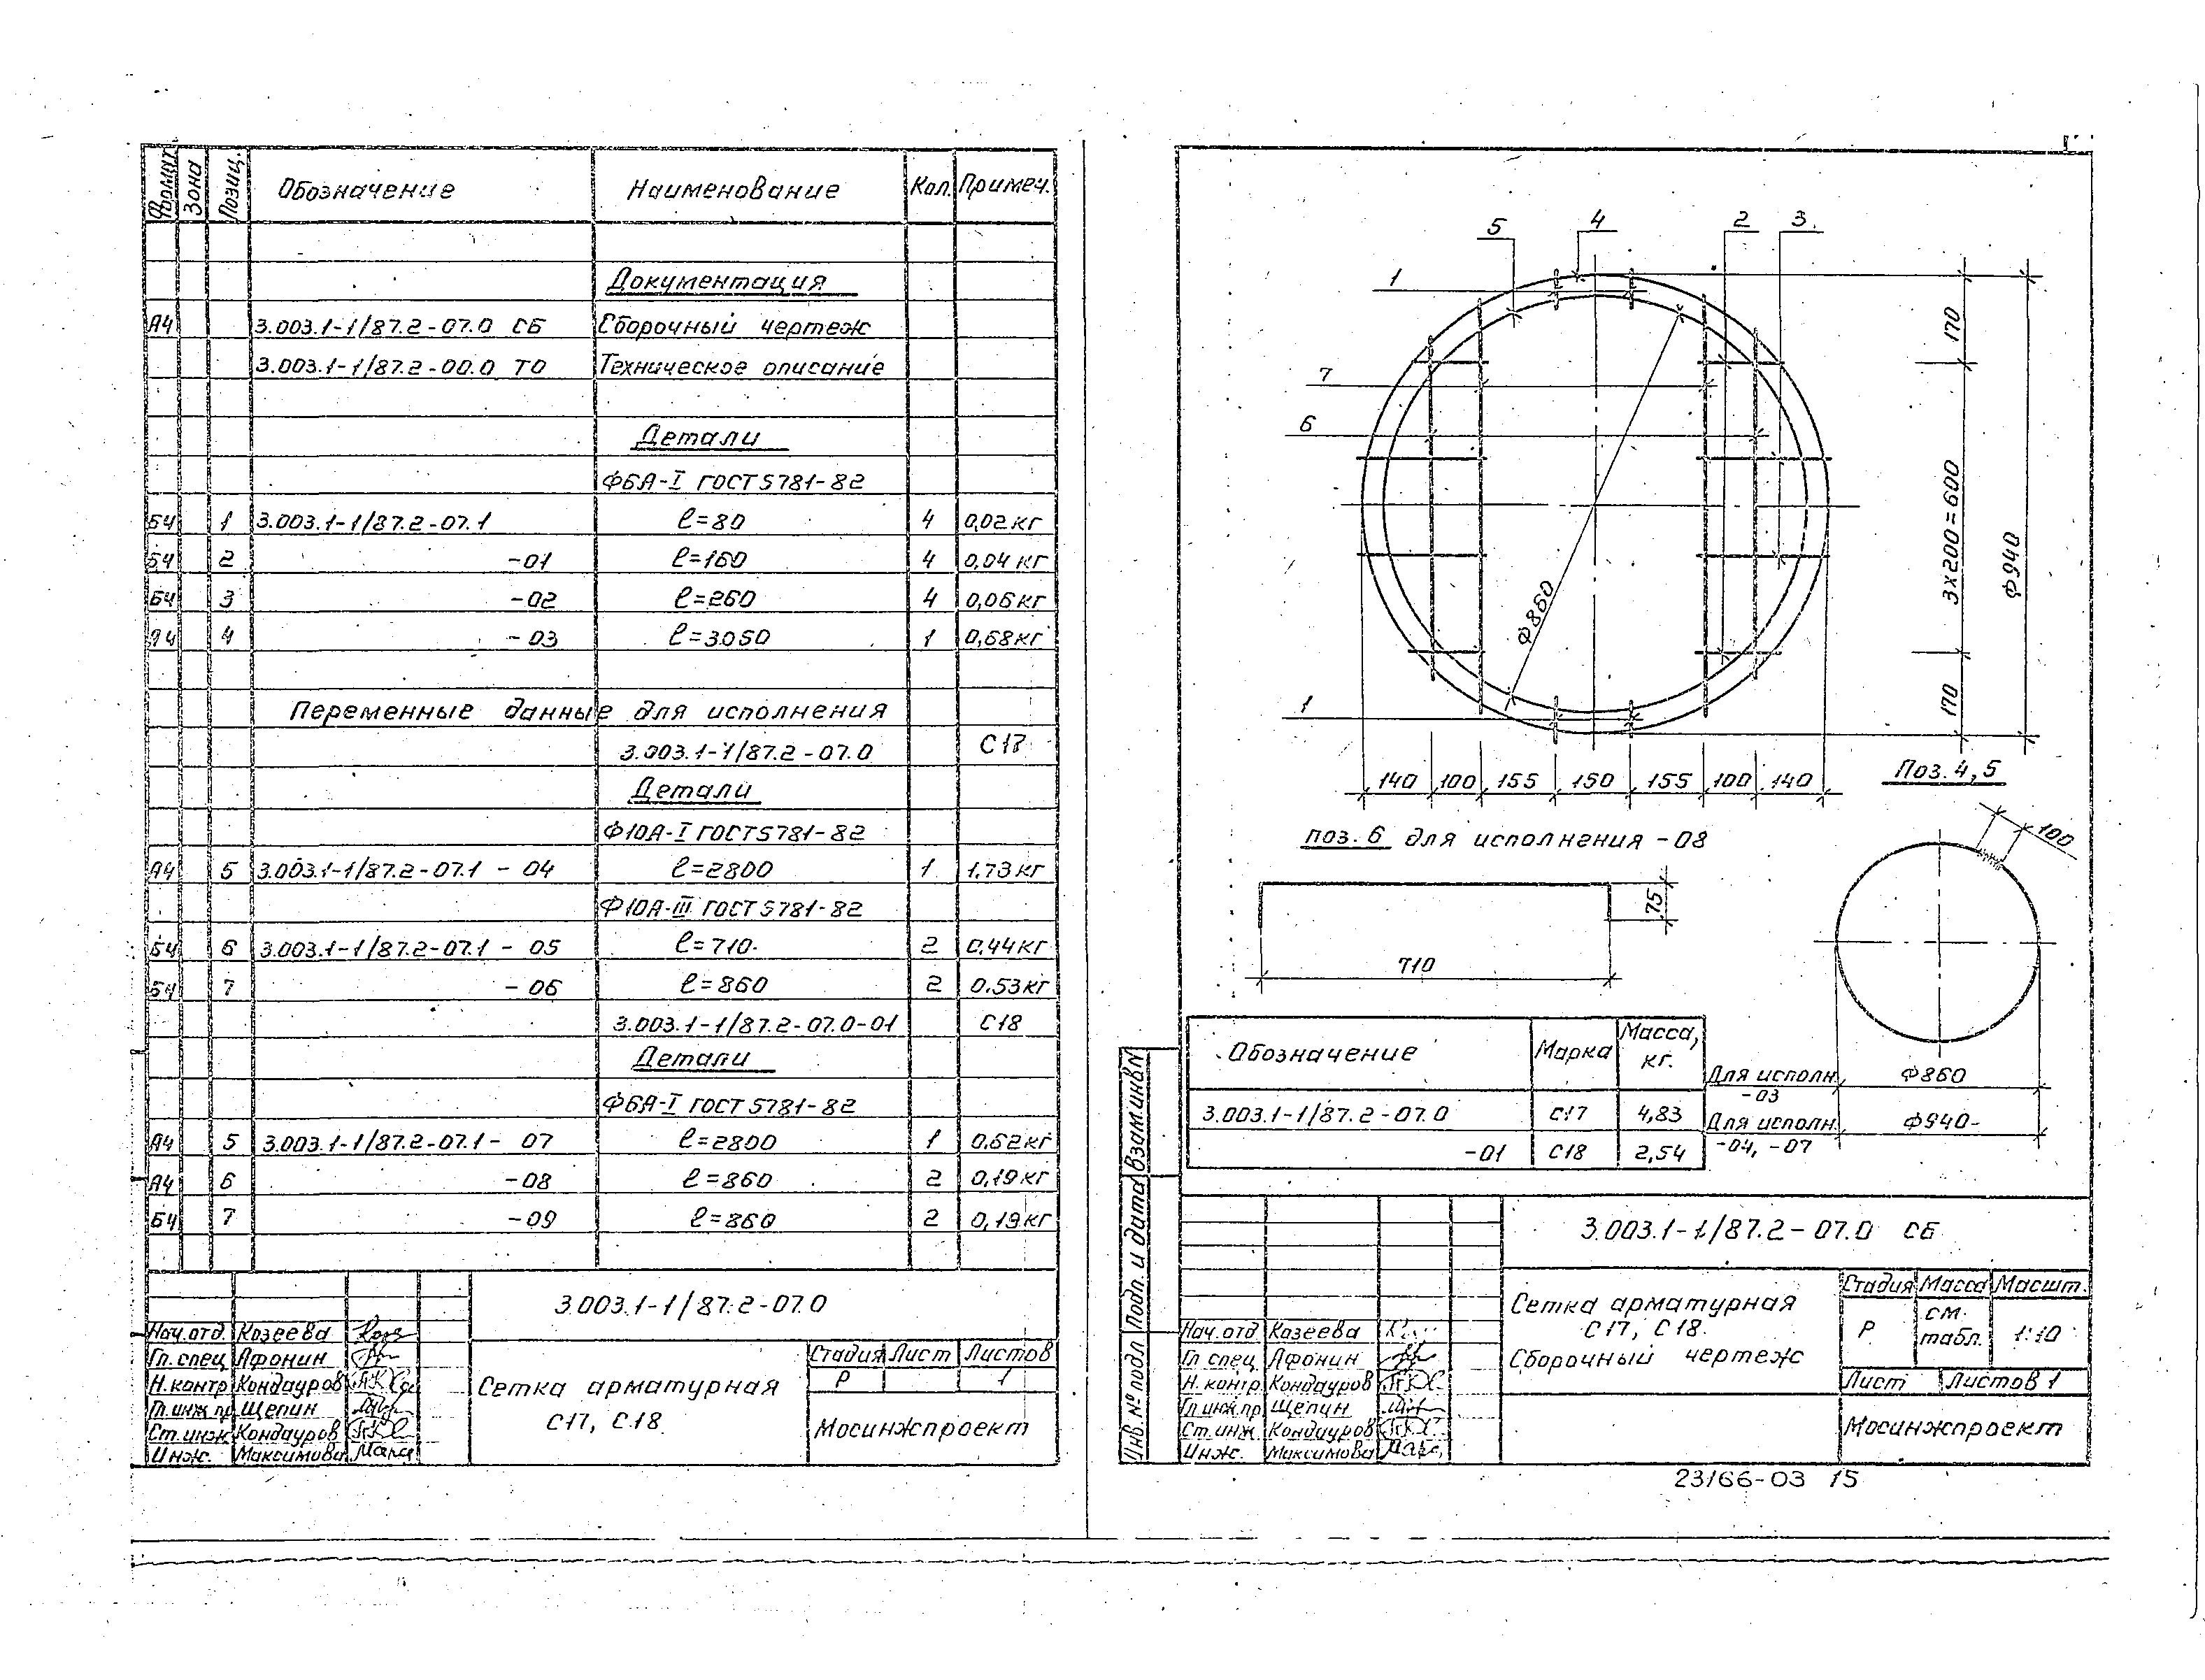 Формат Зона Позиц. Обозначение Наименование Кол. Примеч.
Документация
А4 3.003.1-1/87.2-07.0 СБ Сборочный чертеж
3.003.1-1/87.2-00.0 ТО Техническое описание
Детали
Ф6А-I ГОСТ 5781-82
Б4 1 3.003.1-1/87.2-07.1 ℓ=80 4 0,02кг
Б4 2 -01 ℓ=160 4 0,04кг
Б4 3 -02 ℓ=260 4 0,06кг
А4 4 -03 ℓ=3050 1 0,68кг
Переменные данные для исполнения
3.003.1-1/87.2-07.0 С17
Детали
Ф10А-I ГОСТ 5781-82
А4 5 3.003.1-1/87.2-07.1 - 04 ℓ=2800 1 1,73кг
Ф10А-III ГОСТ 5781-82
Б4 6 3.003.1-1/87.2-07.1 - 05 ℓ=710 2 0,44кг
Б4 7 -06 ℓ=860 2 0,53кг
3.003.1-1/87.2-07.0-01 С18
Детали
Ф6А-I ГОСТ 5781-82
А4 5 3.003.1-1/87.2-07.1- 07 ℓ=2800 1 0,62кг
А4 6 -08 ℓ=860 2 0,19кг
Б4 7 -09 ℓ=860 2 0,19кг
3.003.1-1/87.2-07.0
Нач.отд. Козеева
Гл. спец Афонин
Н.контр Кондауров
Гл.инж.пр Щепин
Ст.инж Кондауров
Инж. Максимова
Сетка арматурная
С17, С18
Стадия Лист Листов
Р 1
Мосинжпроект
5 4 2 3
1
7
6
1
Ф860
170
3х200=600
170
Ф940
140 100 155 150 155 100 140
Поз. 4,5
100
поз. 6 для исполнения -08
75
710
Обозначение Марка Масса, кг.
3.003.1-1/87.2-07.0 С17 4,83
-01 С18 2,54
Для исполн. -03 Ф860
Для исполн. -04, -07 Ф940
Инв.№ подл Подп. и дата Взам инв N
3.003.1-1/87.2-07.0 СБ
Нач.отд Козеева
Гл спец. Афонин
Н. контр. Кондауров
Гл инж.пр Щепин
Ст.инж. Кондауров
Инж. Максимова
Сетка арматурная
С17, С18.
Сборочный чертеж
Стадия Масса Масшт.
Р см. табл. 1:10
Лист Листов 1
Мосинжпроект
23166-03 15